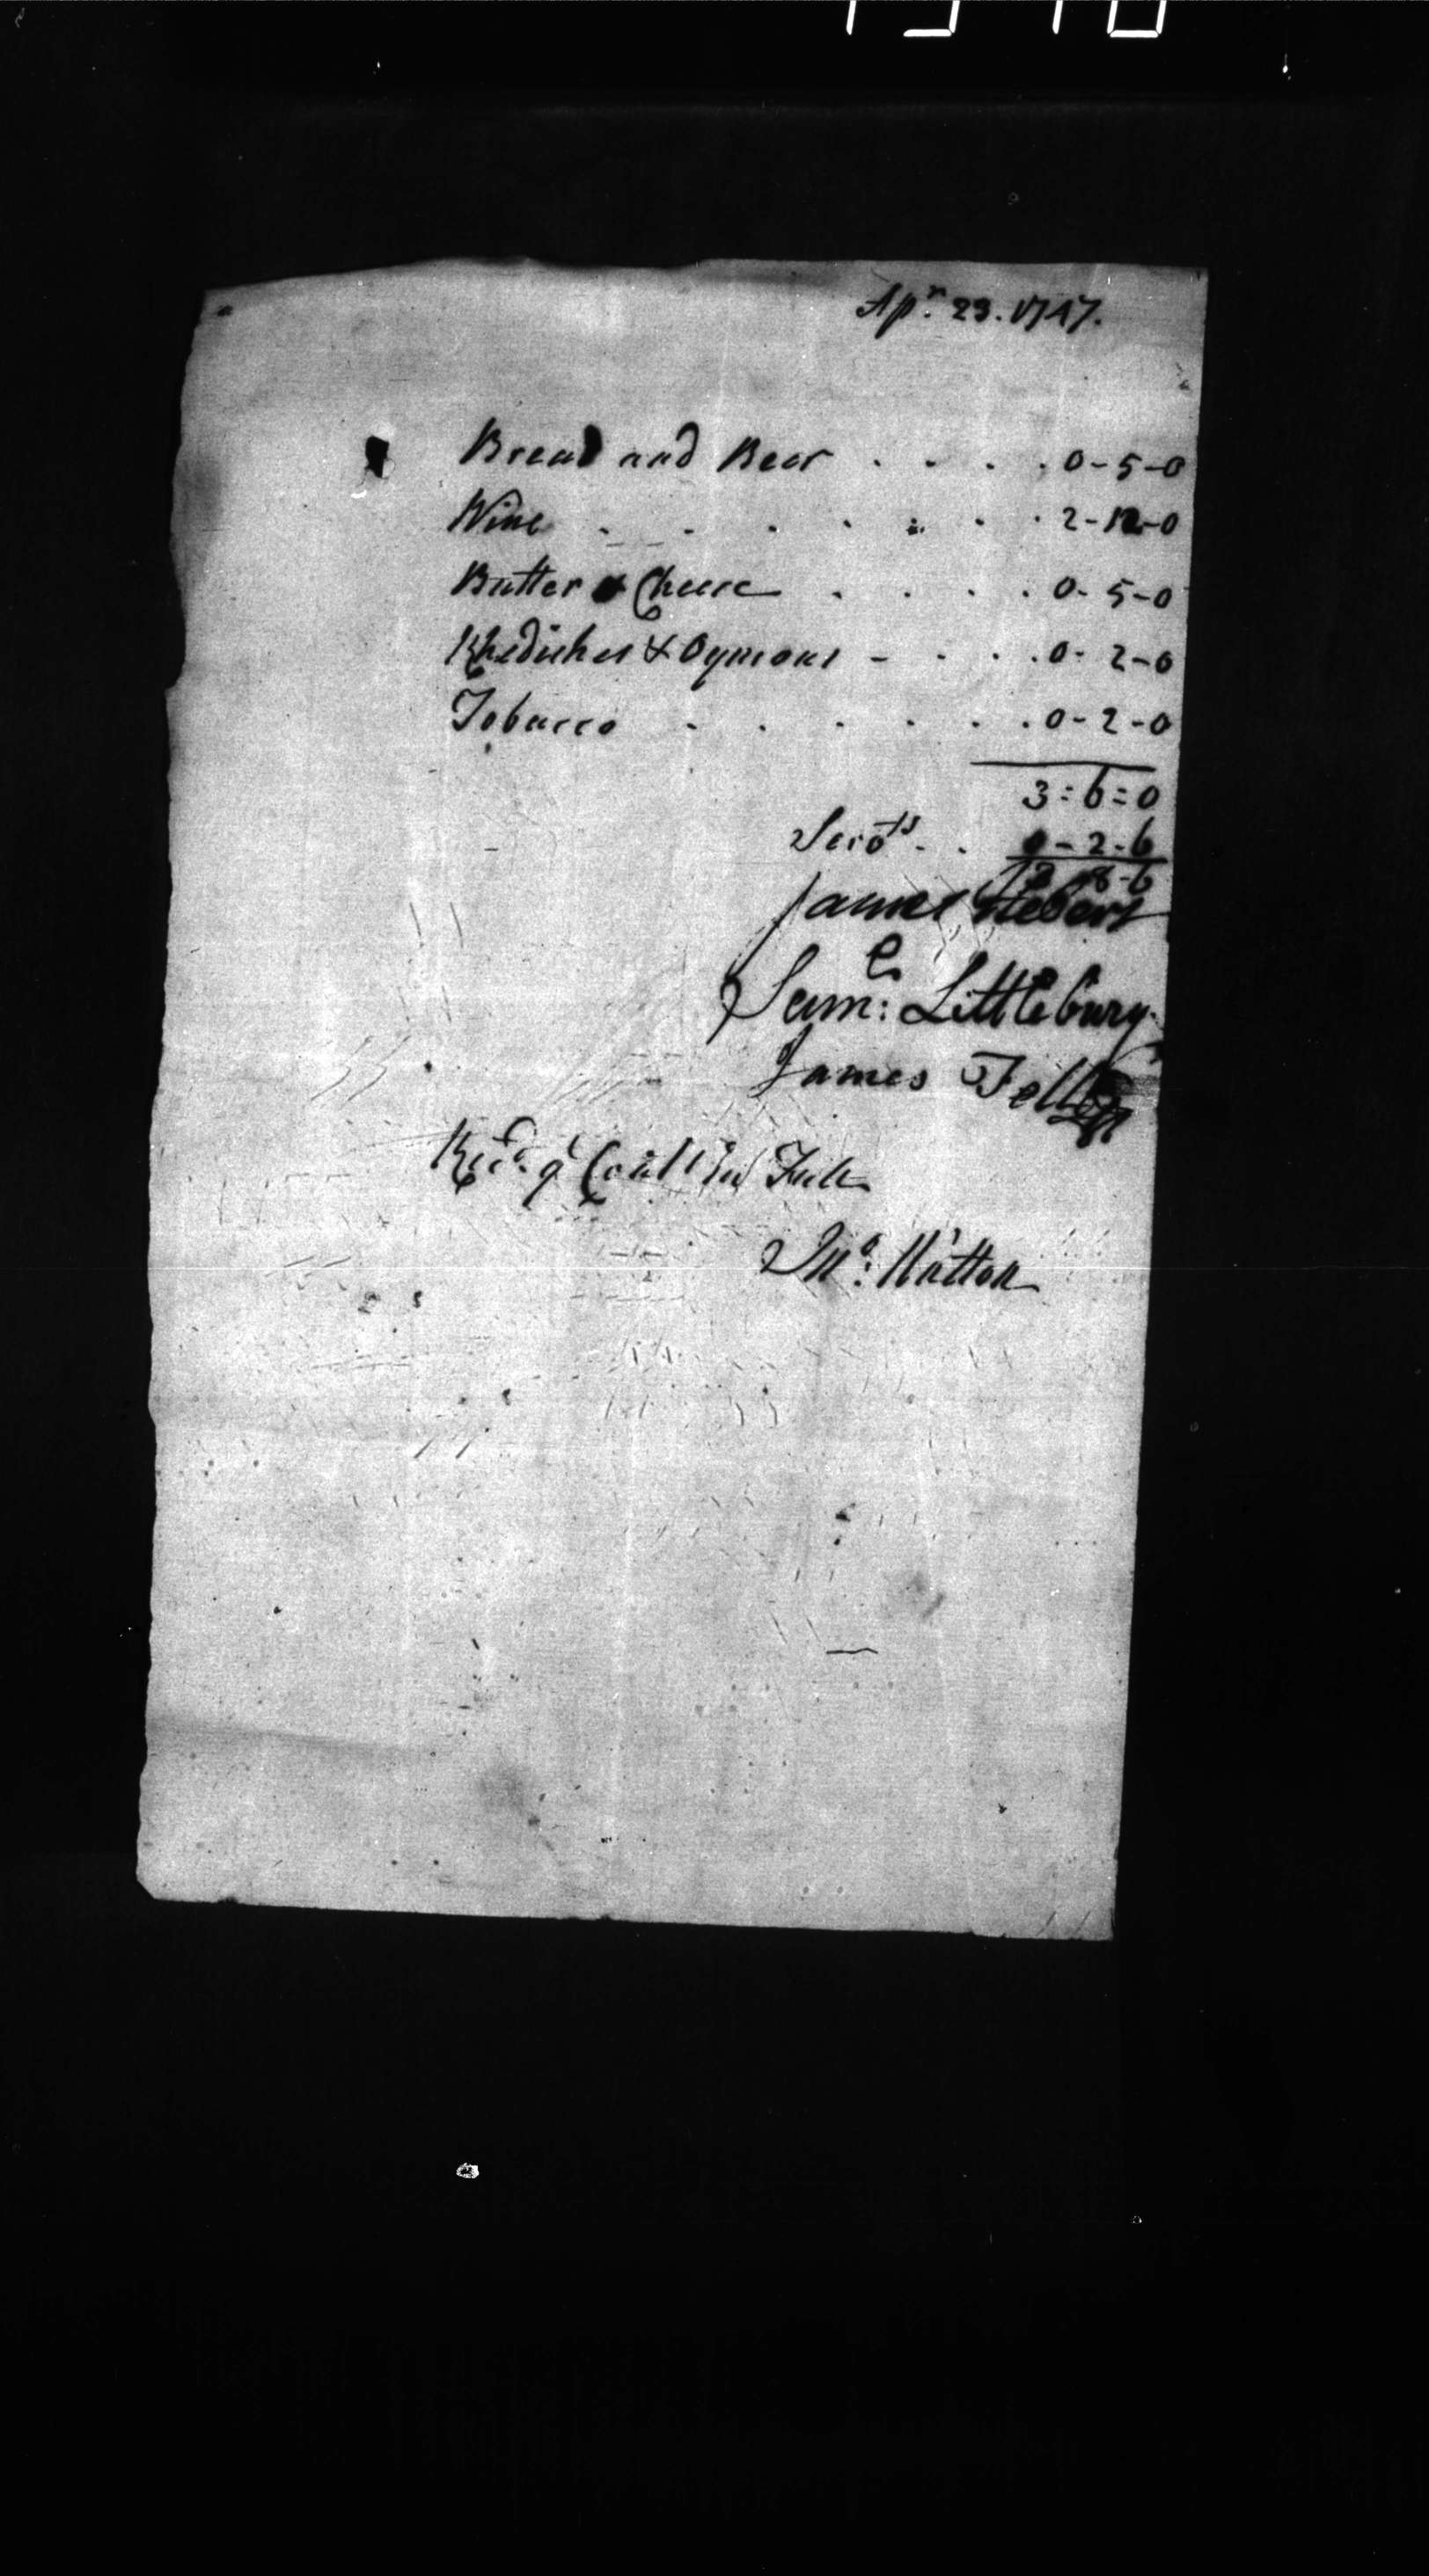 Apr. 23. 1747.
Bread and Beer . . . . 0-5-0
Wine . . . . . . . 2-12-0
Butter & Cheese . . . . 0-5-0
Rhedishes & Oynions - . . . 0-2-0
Tobacco . . . . . . 0-2-0
3=6=0
Servts. . 0-2-6
3-8-6
James
Saml: Littlebury
James Fell
Recd. ye Cont: in Full
Jno: Hutton